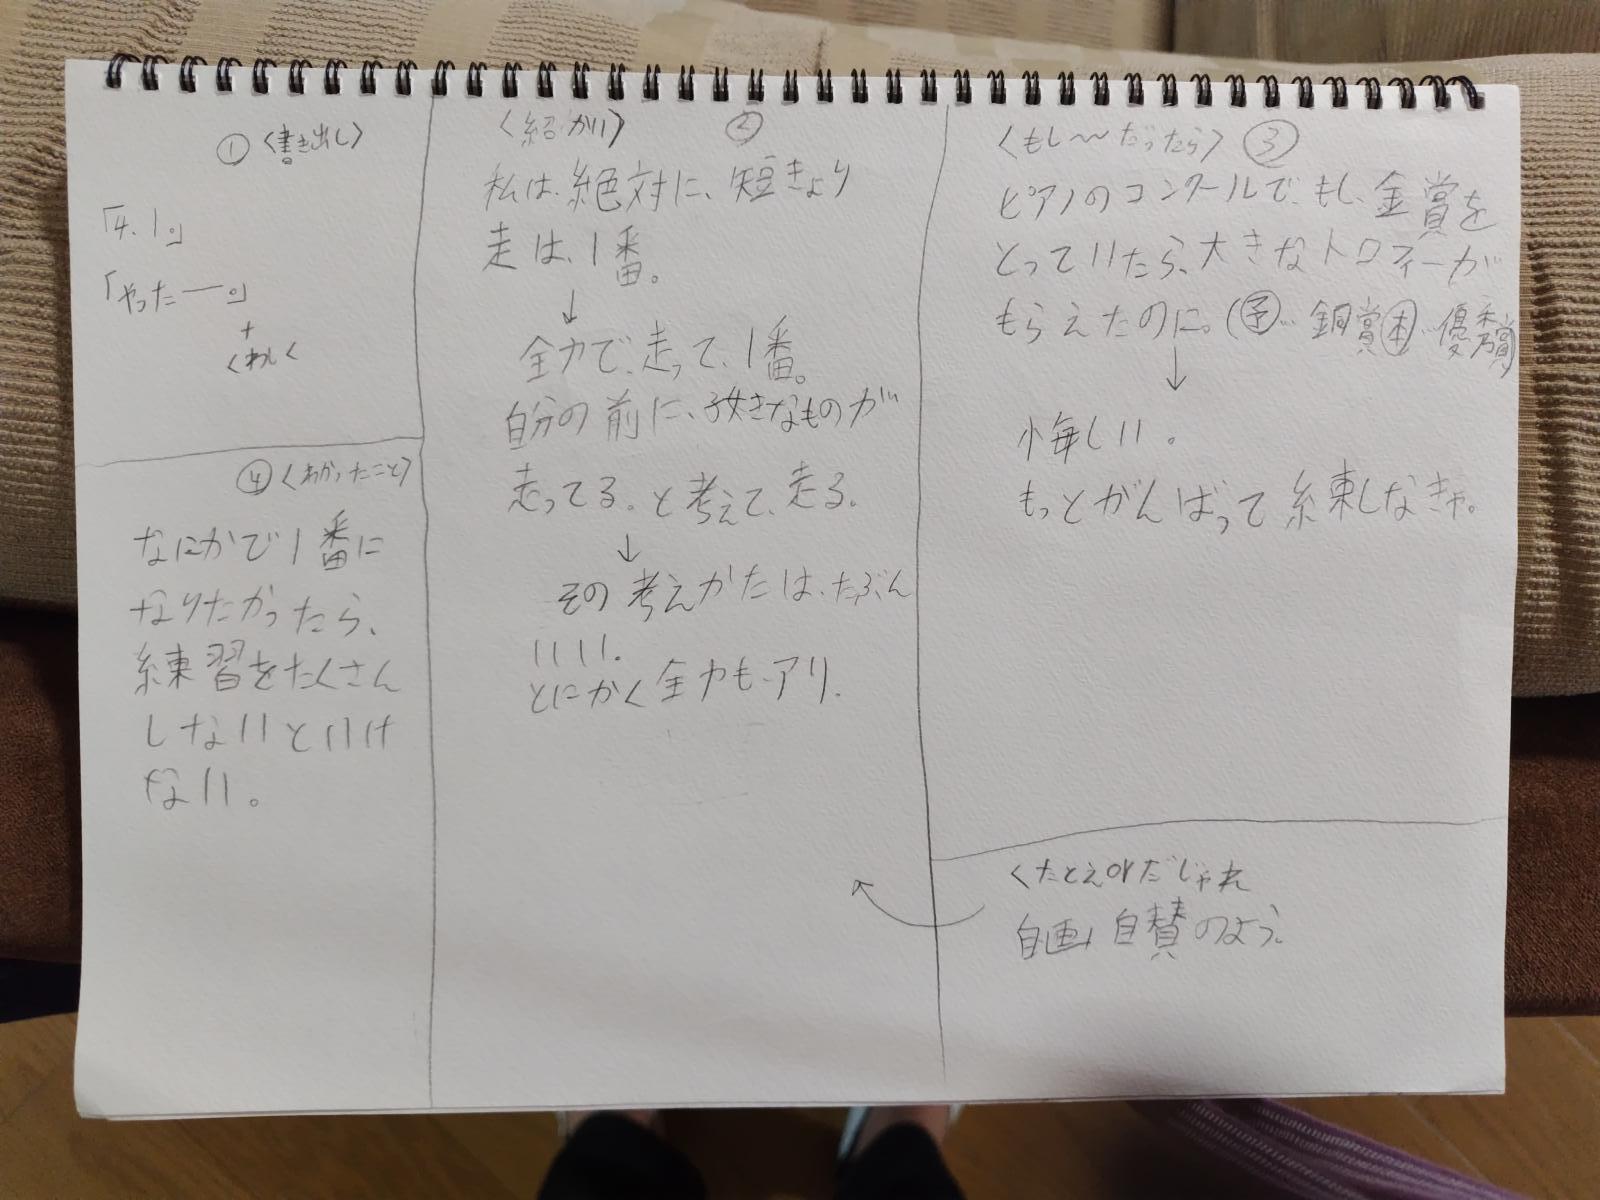 ① 〈書き出し〉
「4.1。」
「やったー。」
+
くわしく
〈紹かい〉 ②
私は、絶対に、短きょり
走は、1番。
↓
全力で、走って、1番。
自分の前に、好きなものが
走ってる。と考えて、走る。
↓
その考えかたは、たぶん
いい。
とにかく全力も、アリ.
〈もし〜だったら〉 ③
ピアノのコンクールで、もし、金賞を
とっていたら、大きなトロフィーが
もらえたのに。(予… 銅賞 本… 優秀賞)
↓
悔しい。
もっとがんばって練習しなきゃ。
④ 〈わかったこと〉
なにかで1番に
なりたかったら、
練習をたくさん
しないといけ
ない。
〈たとえorだじゃれ
自画自賛のよう。